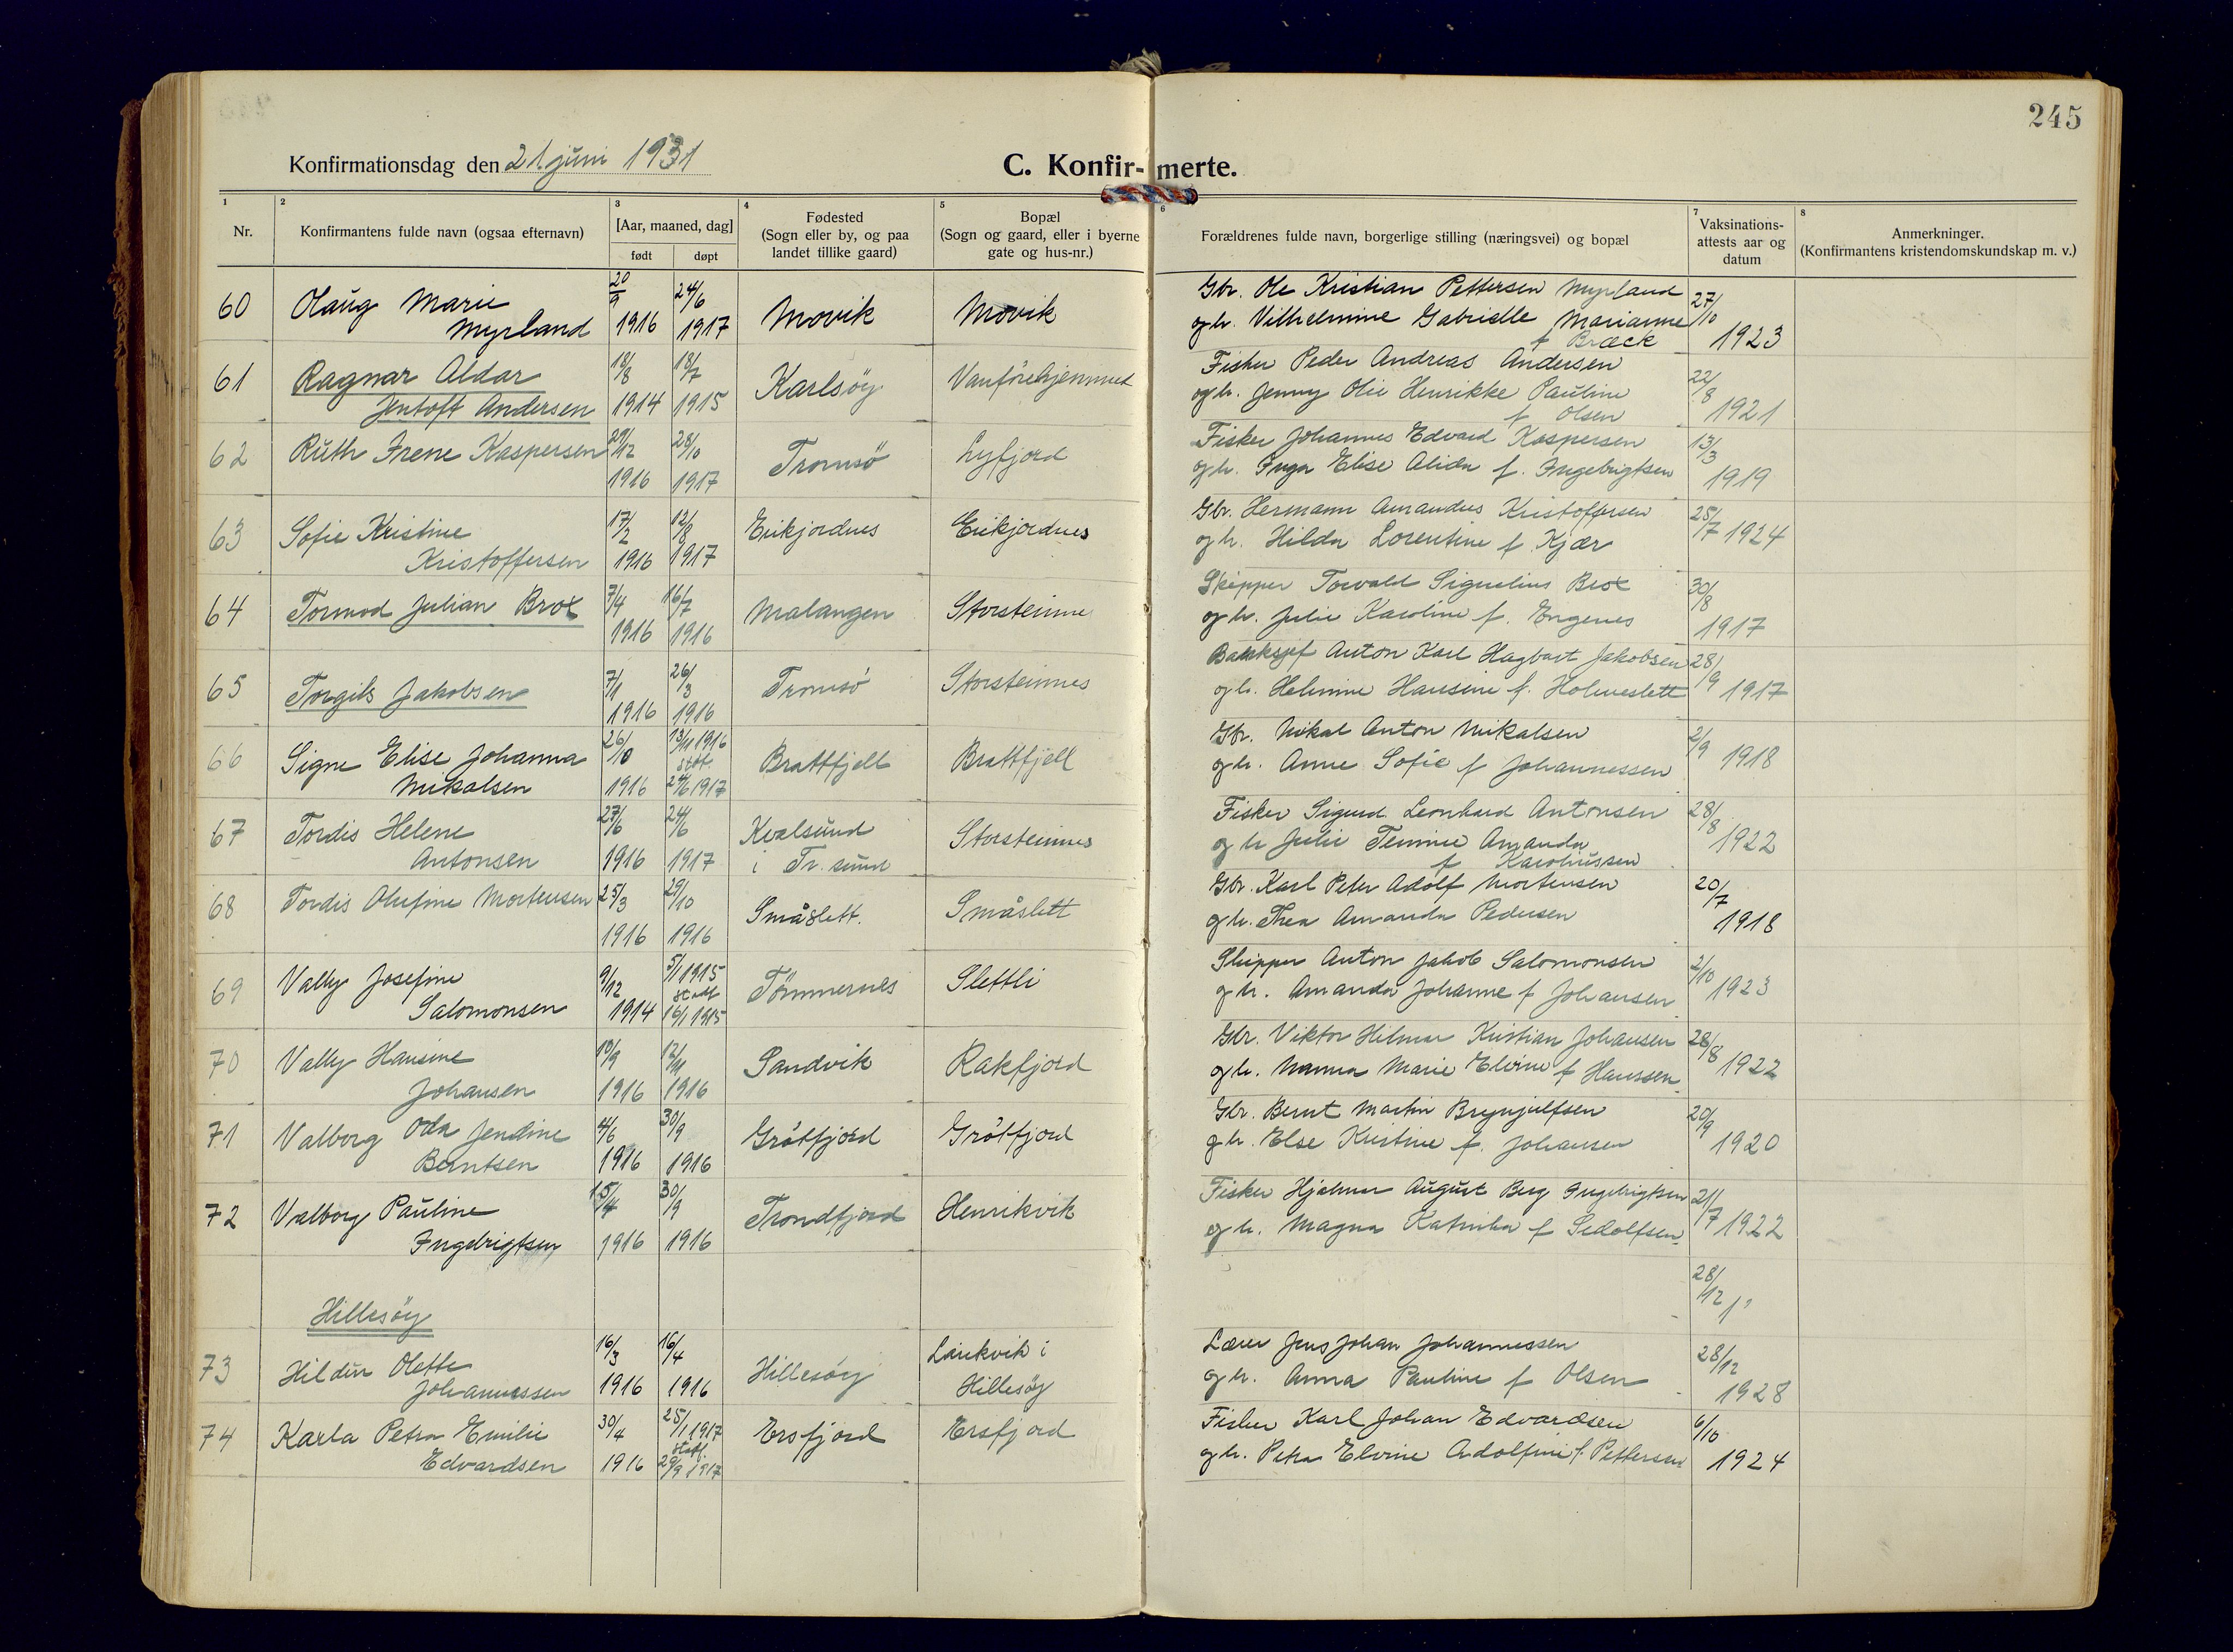 245
Konfirmationsdag den 21 juni 1931
C. Konfir-merte.
1 Nr.
2 Konfirmantens fulde navn (ogsaa efternavn)
3 [Aar, maaned, dag] født døpt
4 Fødested (Sogn eller by, og paa landet tillike gaard)
5 Bopæl (Sogn og gaard, eller i byerne gate og hus-nr.)
6 Forældrenes fulde navn, borgerlige stilling (næringsvei) og bopæl
7 Vaksinations-attests aar og datum
8 Anmerkninger. (Konfirmantens kristendomskundskap m. v.)
60 Olaug Marie Myrland 20/9 1916 24/6 1917 Movik Movik Gbr. Ole Kristian Pettersen Myrland og h. Vilhelmine Gabrielle Marianne f Bræck 27/10 1923
61 Ragnar Aldar Jentoft Andersen 18/8 1914 18/7 1915 Karlsöy Vanförehjemmet Fisker Peder Andreas Andersen og h. Jenny Olie Henrikke Pauline f Olsen 22/8 1921
62 Ruth Irene Kaspersen 29/12 1916 28/10 1917 Tromsö Lyfjord Fisker Johannes Edvard Kaspersen og h. Inga Elise Alida f. Ingebrigtsen 13/3 1919
63 Sofie Kristine Kristoffersen 17/2 1916 12/8 1917 Eikjordnes Eikjordnes Gbr. Hermann Amandus Kristoffersen og h. Hilda Lorentine f. Kjær 25/7 1924
64 Tormod Julian Brox 7/4 1916 16/7 1916 Malangen Storsteinne Skipper Torvald Signelius Brox og h. Julie Karoline f. Engenes 30/8 1917
65 Torgils Jakobsen 7/1 1916 26/3 1916 Tromsö Storsteinnes Banksjef Anton Karl Hagbart Jakobsen og h. Helmine Hansine f. Holmeslett 28/9 1917
66 Signe Elise Johanna Mikalsen 26/10 1916 13/11 1916 stdf. 24/6 1917 Brattfjell Brattfjell Gbr. Mikal Anton Mikalsen og h. Anne Sofie f Johannessen 2/9 1918
67 Tordis Helene Antonsen 27/6 1916 24/6 1917 Kvalsund i Tr. sund Storsteinnes Fisker Sigurd Leonhard Antonsen og h Julie Temine Amanda f Karoliussen 28/8 1922
68 Tordis Olufine Mortensen 25/3 1916 29/10 1916 Småslett. Småslett Gbr. Karl Peter Adolf Mortensen og h. Thea Amanda Pedersen 20/7 1918
69 Vally Josefine Salomonsen 9/12 1914 5/1 1915 stadf 16/1 1915 Tömmernes Slettli Skipper Anton Jakob Salomonsen og h. Amanda Johanne f Johansen 2/10 1923
70 Vally Hansine Johansen 19/9 1916 12/11 1916 Sandvik Rakfjord Gbr. Viktor Hilmar Kristian Johansen og h. Nanna Marie Elvine f Hanssen 28/8 1922
71 Valborg Oda Jendine Berntsen 4/6 1916 30/9 1916 Grötfjord Grötfjord Gbr. Bernt Martin Brynjulfsen og h. Else Kristine f. Johansen 20/9 1920
72 Valborg Pauline Ingebrigtsen 15/4 1916 30/9 1916 Trondfjord Henrikvik Fisker Hjalmar August Berg Ingebrigtsen og h. Magna Katinka f Sedolfsen 21/7 1922
28/12
Hillesöy
73 Hildur Olette Johannessen 16/3 1916 16/4 1916 Hillesöy Laukvik i Hillesöy Lærer Jens Johan Johannessen og h. Anna Pauline f Olsen 28/12 1928
74 Karla Petra Emilie Edvardsen 30/4 1916 25/1 1917 stadf. 29/9 1917 Ersfjord Ersfjord Fisker Karl Johan Edvardsen og h. Petra Elvine Adolfine f. Pettersen 6/10 1924